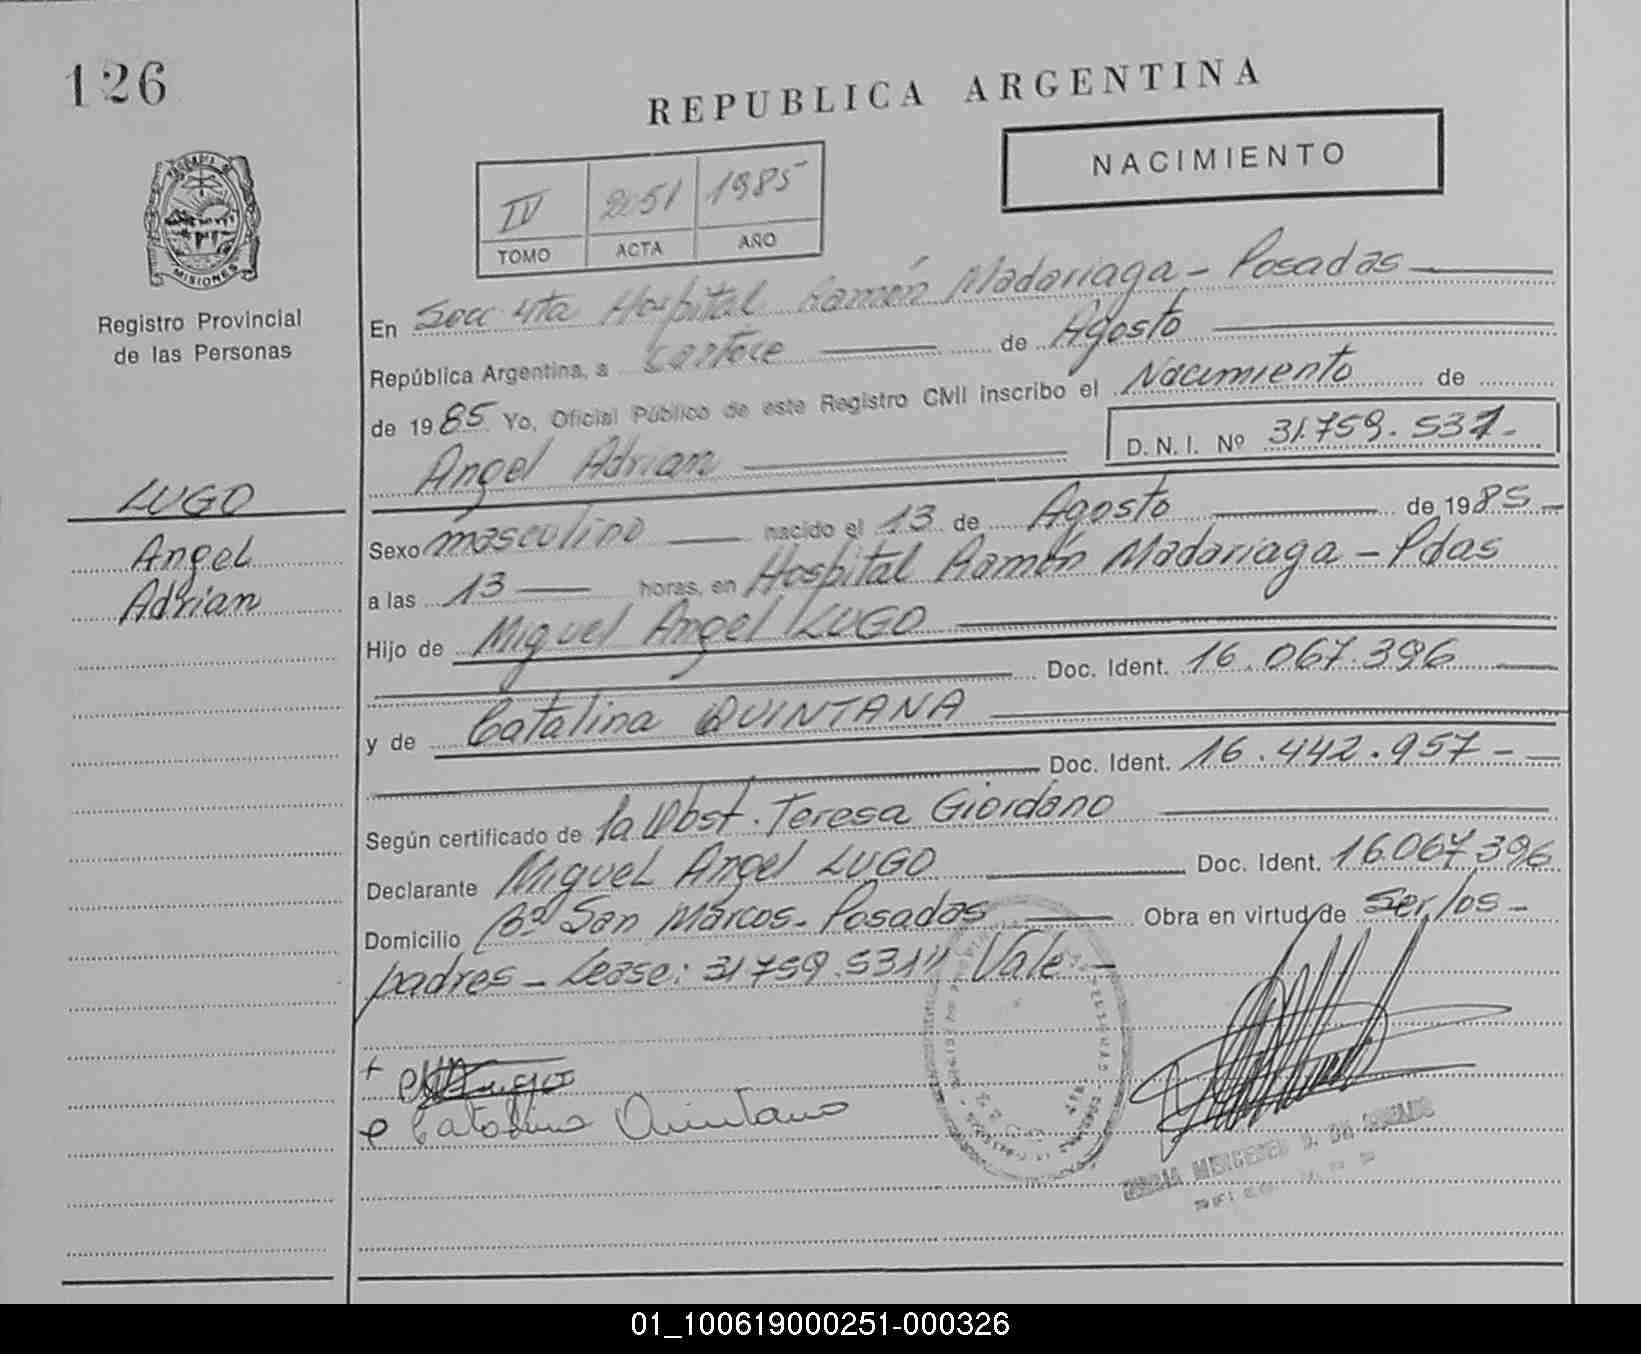 126
REPUBLICA ARGENTINA
NACIMIENTO
IV 2051 1985
TOMO ACTA AÑO
PROVINCIA DE
MISIONES
Registro Provincial
de las Personas
LUGO
Angel
Adrian
En Secc 4ta Hospital Ramón Madariaga - Posadas
República Argentina, a catorce de Agosto
de 1985 Yo, Oficial Público de este Registro Civil inscribo el Nacimiento de
Angel Adrian D. N. I. Nº 31.759.531.-
Sexo masculino nacido el 13 de Agosto de 1985
a las 13 horas, en Hospital Ramón Madariaga - Pdas
Hijo de Miguel Angel LUGO
Doc. Ident. 16.067.396
y de Catalina QUINTANA
Doc. Ident. 16.442.957
Según certificado de la Obst. Teresa Giordano
Declarante Miguel Angel LUGO Doc. Ident. 16.067.396
Domicilio Bº San Marcos - Posadas Obra en virtud de ser los
padres - Lease: 31759.531" Vale -
Lugo
Catalina Quintana
MERCEDES D. DA
01_100619000251-000326